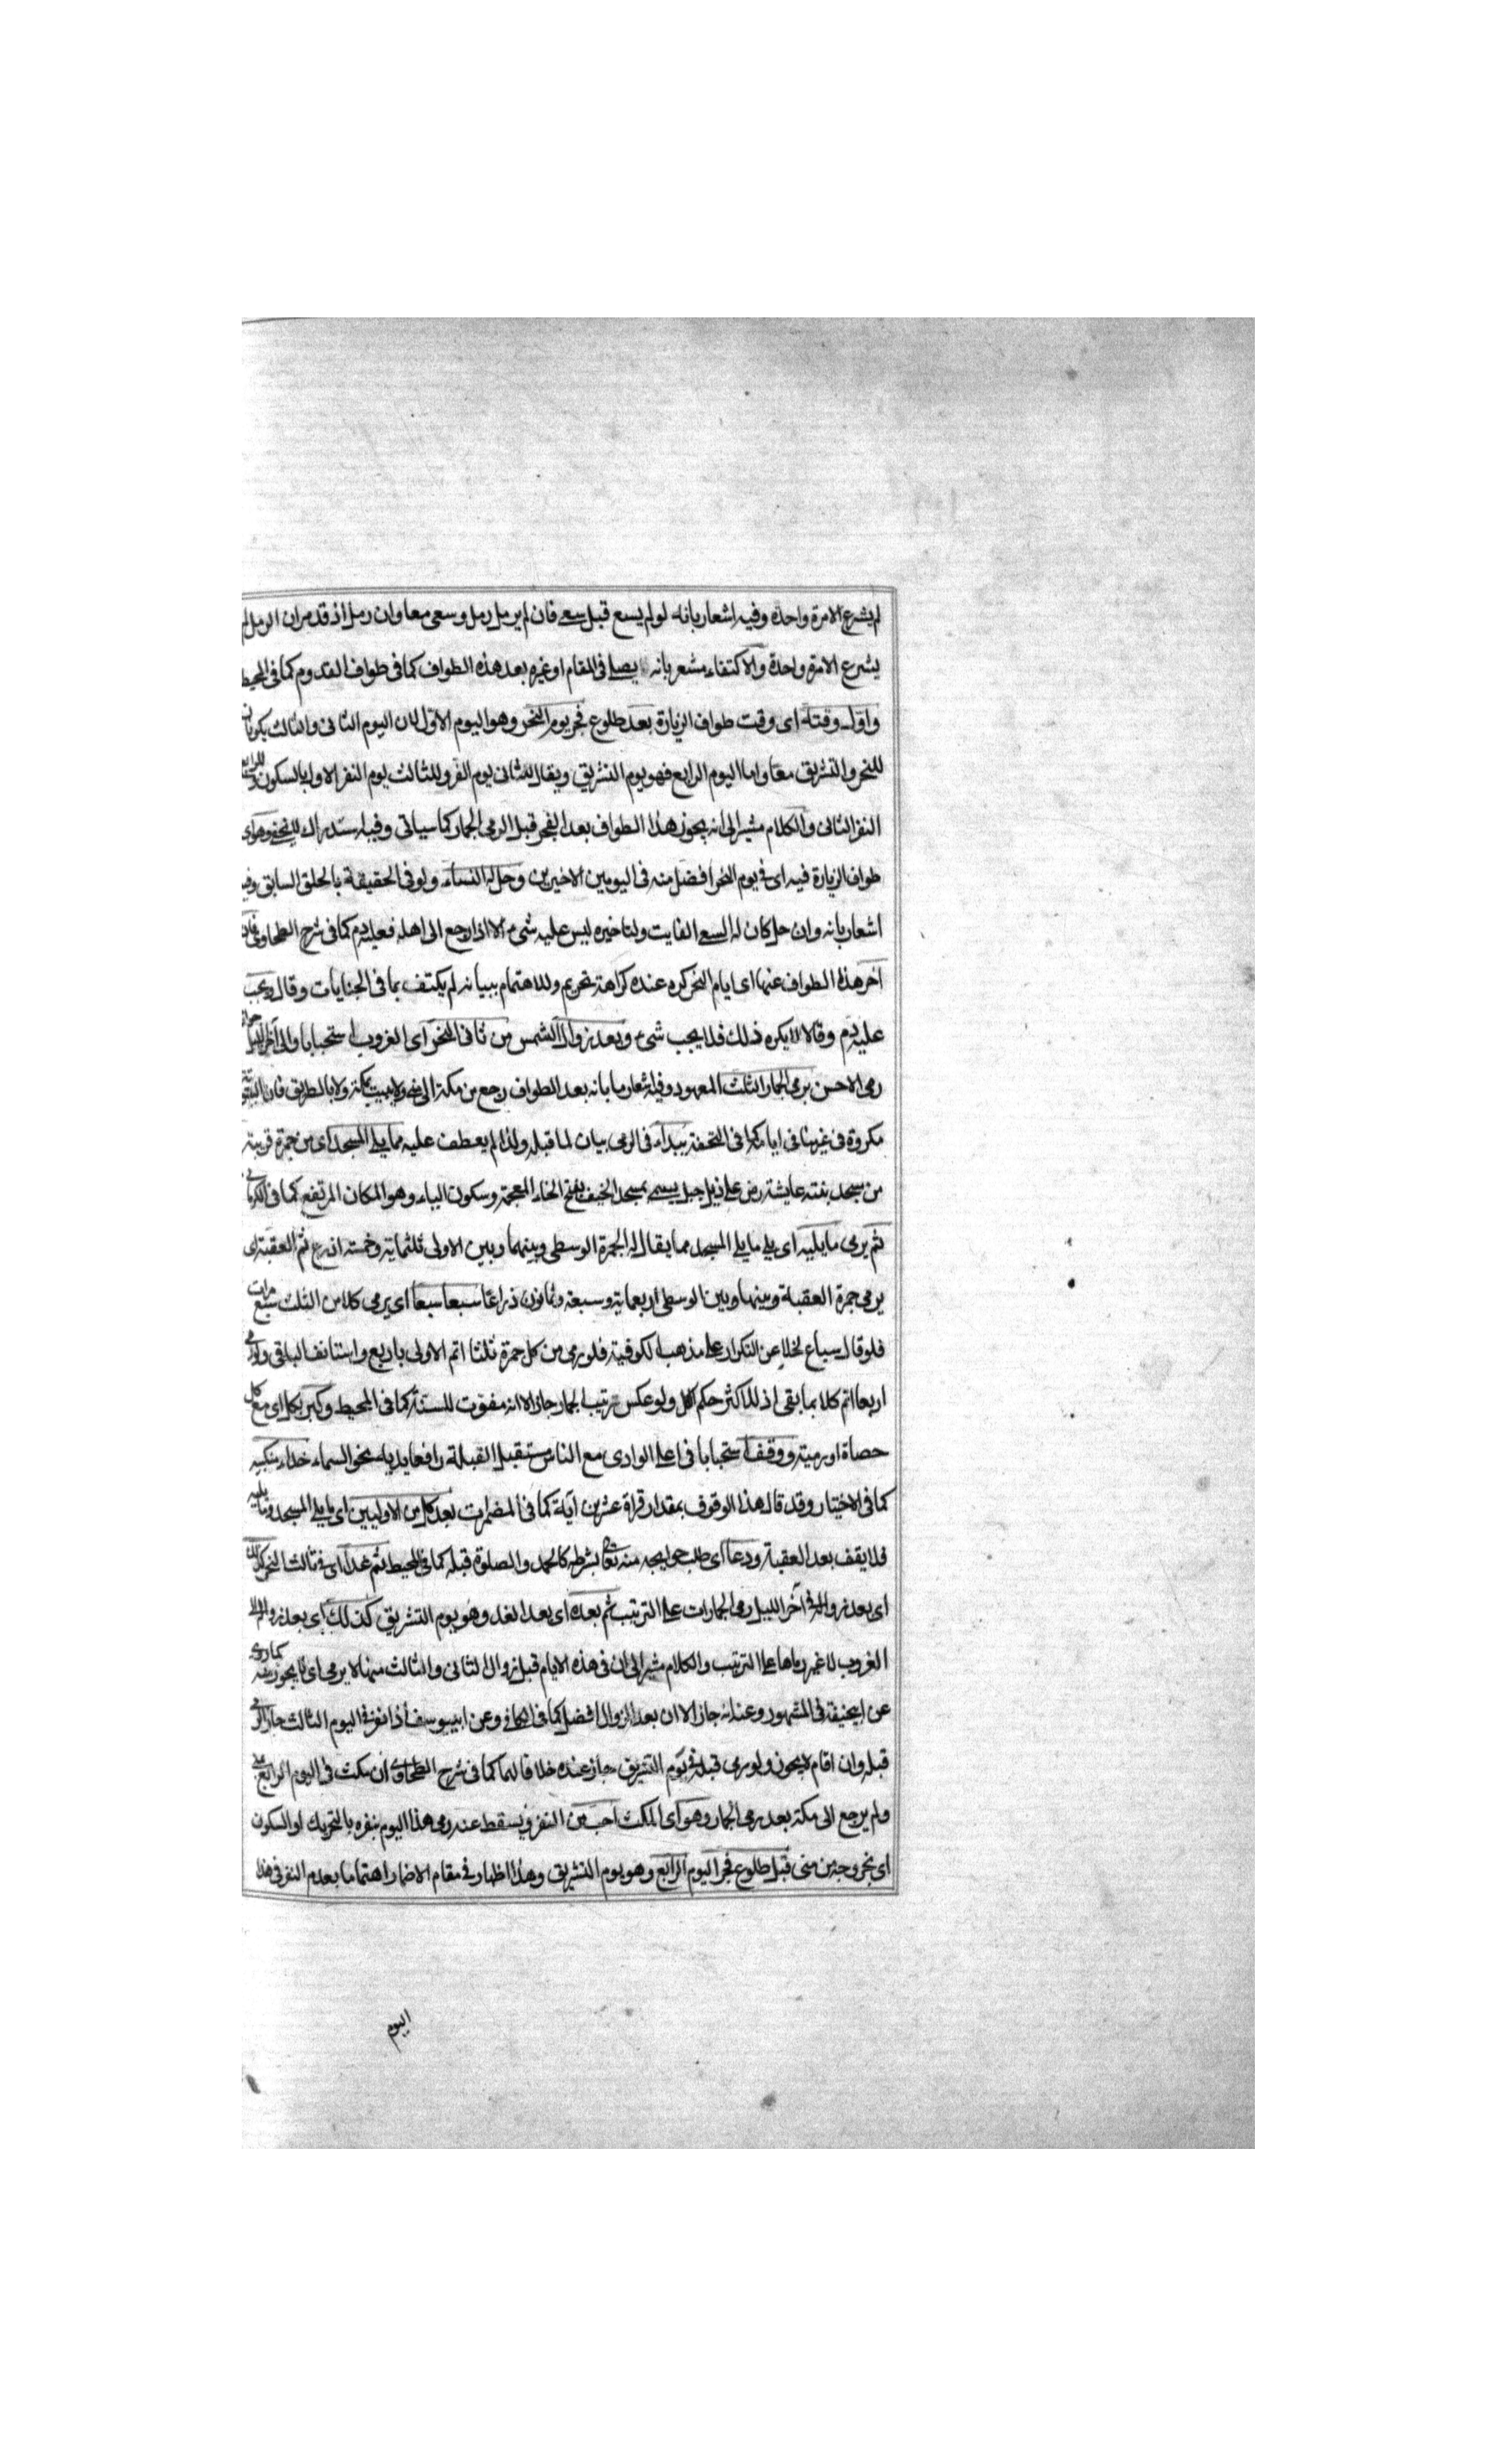 لم يشرع الا مرة واحدة وفيه اشعار بانه لو لم يسع قبل سعى فان لم يرمل رمل وسعى معا وان رمل اذ قد مر ان الرمل لم
يشرع الا مرة واحدة والاكتفاء مشعر بانه يصلى فى المقام او غيره بعد هذه الطواف كما فى طواف القدوم كما فى المحيط
واول وقته اى وقت طواف الزيارة بعد طلوع فجر يوم النحر وهو اليوم الاول لان اليوم الثانى والثالث يكونان
للنحر والتشريق معا واما اليوم الرابع فهو يوم التشريق ويقال للثانى يوم القر وللثالث يوم النفر الاول بالسكون وللرابع
النفر الثانى والكلام مشير الى انه يجوز هذا الطواف بعد الفجر قبل الرمى الجمار كما سياتى وفيه استدراك وهو اى
طواف الزيارة فيه اى فى يوم النحر افضل منه فى اليومين الاخيرين وحل له النساء ولو فى الحقيقة بالحلق السابق وفيه
اشعار بانه وان حل كان له السعى الفايت ولتاخيره ليس عليه شىء الا اذا رجع الى اهله فعليه دم كما فى شرح الطحاوى فان
اخر هذه الطواف عنها اى ايام النحر كره عنده كراهة تحريم وللاهتمام ببيانه لم يكتف بما فى الجنايات وقال ويجب
عليه دم وقالا لا يكره ذلك فلا يجب شىء وبعد زوال الشمس من ثانى النحر اى الغروب استحبابا والى آخر الليل جوازا
رمى الاحسن يرمى الجمار الثلث المعهود وفيه اشعار ما بانه بعد الطواف رجع من مكة الى منى ولا يبيت بمكة ولا بالطريق فان البيتوتة
مكروة فى غير منا فى ايامه كما فى التحفة يبدا فى الرمى بيان لما قبله ولذا لم يعطف عليه مما يلى المسجد اى من جمرة قريبة
من مسجد بنته عايشة رض على ذيل جبل يسمى بمسجد الخيف بفتح الخاء المعجمة وسكون الياء وهو المكان المرتفع كما فى الكرمانى
ثم يرمى ما يليه اى يلى ما يلى المسجد مما يقال له الجمرة الوسطى وبينهما وبين الاولى ثلثماية وخمسة اذرع ثم العقبة اى
يرمى جمرة العقبة وبينها وبين الوسطى اربعماية وسبعة وثمانون ذراعا سبعا سبعا اى يرمى كلا من الثلث سبع مرات
فلو قال سباع لخلا عن التكرار على مذهب الكوفية فلو رمى من كل جمرة ثلثا اتم الاولى باربع واستانف الباقى ولو رمى
اربعا اتم كلا بما بقى اذ للاكثر حكم الكل ولو عكس ترتيب الجمار جاز الا انه مفوت للسنة كما فى المحيط وكبر بكل اى مع كل
حصاة او رمية ووقف استحبابا فى اعلى الوادى مع الناس مستقبل القبلة رافعا يديه نحو السماء حذاء منكبيه
كما فى الاختيار وقد قال هذا الوقوف بمقدار قراة عشرين آية كما فى المضمرات بعد كل من الاوليين اى ما يلى المسجد وما يليه
فلا يقف بعد العقبة ودعا اى طلب حوايجه منه تعالى بشرطه كالحمد والصلوة قبله كما فى المحيط ثم غدا اى فى ثالث النحر كذلك
اى بعد زواله الى آخر الليل رمى الجمارات على الترتيب ثم بعده اى بعد الغد وهو يوم التشريق كذلك اى بعد زواله الى
الغروب لا غير رماها على الترتيب والكلام مشير الى ان فى هذه الايام قبل زوال الثانى والثالث منها لا يرمى اى لا يجوز كما روى
عن ابيحنيفة فى المشهور وعنه انه جاز الا ان بعد الزوال افضل كما فى الكافى وعن ابييوسف اذا نفر فى اليوم الثالث جاز الرمى
قبله وان اقام لا يجوز ولو رمى قبله فى يوم التشريق جاز عنده خلافا لهما كما فى شرح الطحاوى ان مكث فى اليوم الرابع بمنى
ولم يرجع الى مكة بعد رمى الجمار وهو اى المكث احب من النفر ويسقط عنه رمى هذا اليوم بنفره بالتحريك او السكون
اى بخروجه من منى قبل طلوع فجر اليوم الرابع وهو يوم التشريق وهذا اظهار فى مقام الاضمار اهتماما بعدم النفر فى هذا
اليوم